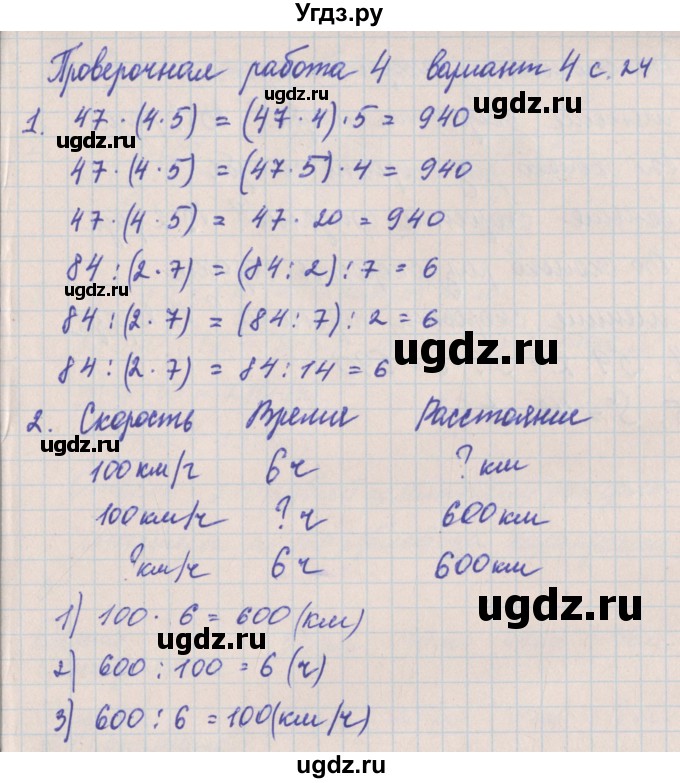 Угдз.ру
Проверочная работа 4 вариант 4 с. 24
1. 47 · (4 · 5) = (47 · 4) · 5 = 940
ugdz.ru
ugdz.ru
47 · (4 · 5) = (47 · 5) · 4 = 940
47 · (4 · 5) = 47 · 20 = 940
84 : (2 · 7) = (84 : 2) : 7 = 6
ugdz.ru
84 : (2 · 7) = (84 : 7) : 2 = 6
ugdz.ru
84 : (2 · 7) = 84 : 14 = 6
2. Скорость Время Расстояние
ugdz.ru
100 км/г 6 ч ? км
100 км/ч ? ч 600 км
? км/ч 6 ч 600 км
ugdz.ru
1) 100 · 6 = 600 (км)
ugdz.ru
2) 600 : 100 = 6 (ч)
3) 600 : 6 = 100 (км/ч)
ugdz.ru
ugdz.ru